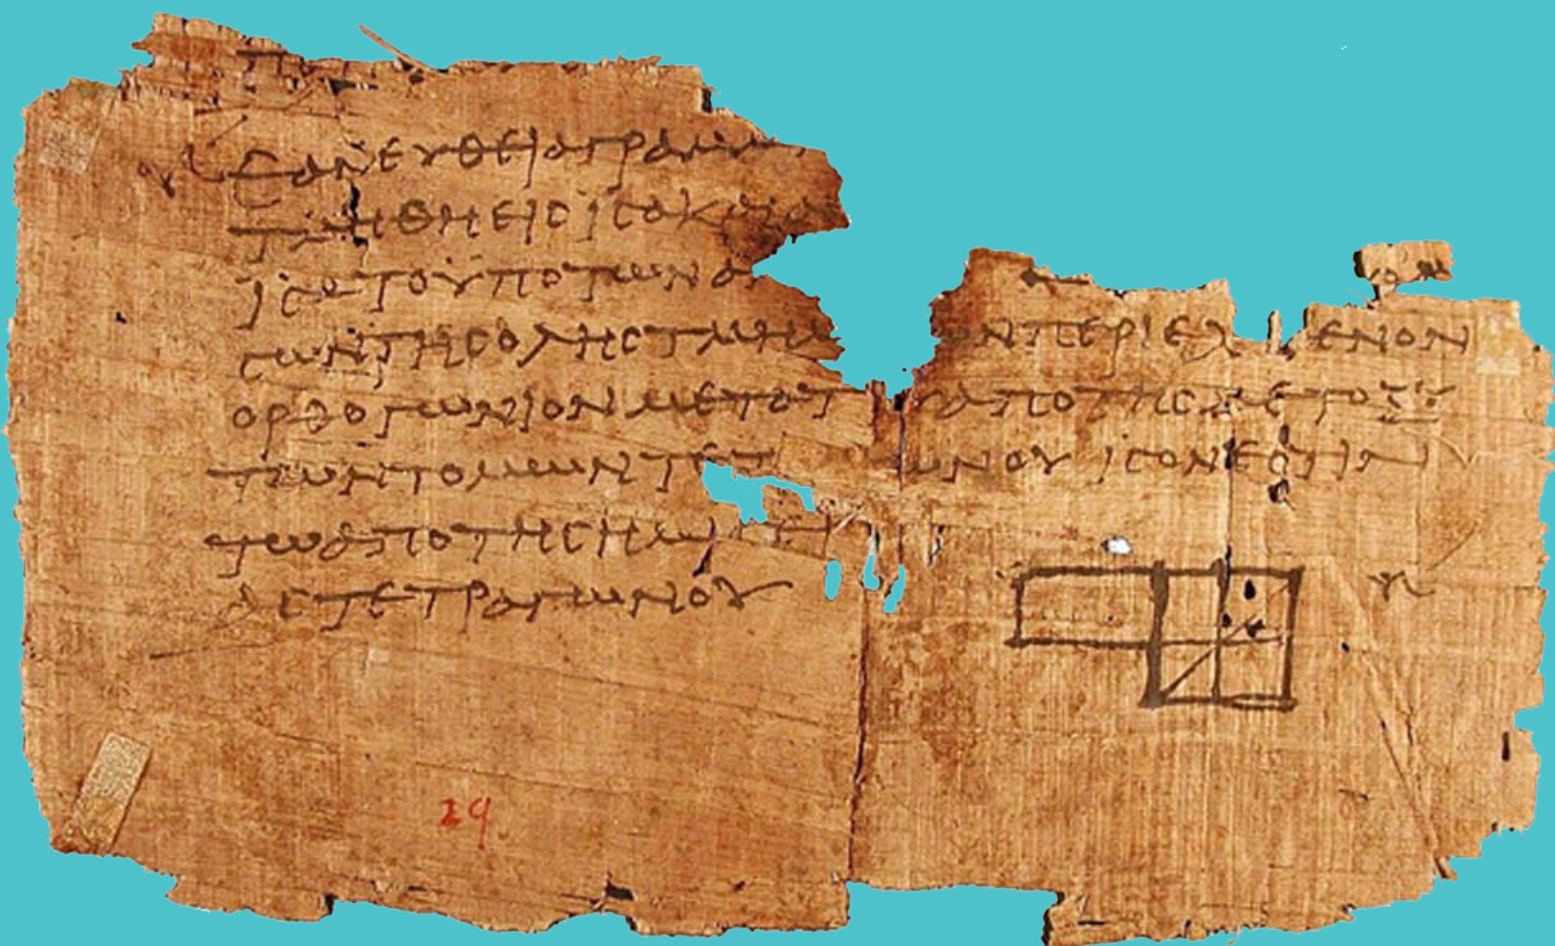 ΕΑΝΕΥΘΕΙΑΓΡΑΜΜ
ΤΜΗΘΗΕΙϹΙϹΑΚΑΙΑ
ΙϹΑΤΟΥΠΟΤΩΝΑ
ϹΩΝΤΗϹΟΛΗϹΤΜΗΜ ΩΝΠΕΡΙΕΧ ΕΝΟΝ
ΟΡΘΟΓΩΝΙΟΝΜΕΤΑΤ ΑΠΟΤΗϹΜΕΤΟΞΥ
ΤΩΝΤΟΜΩΝΤΕΤ ΩΝΟΥ ΙϹΟΝΕϹΤΙΝ
ΤΩΑΠΟΤΗϹΗΜΙϹΕΙ
ΑϹΤΕΤΡΑΓΩΝΟΥ
29